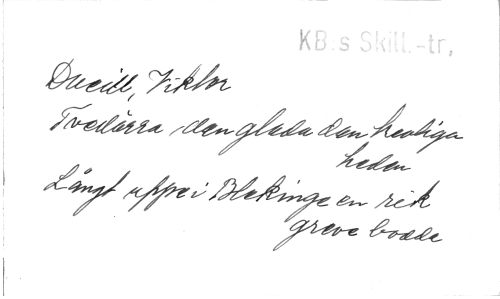 KB:s Skill.-tr,
Dueill, Viktor
Tvedöra den glada den trevliga
heden
Långt uppe i Blekinge en rik
greve bodde